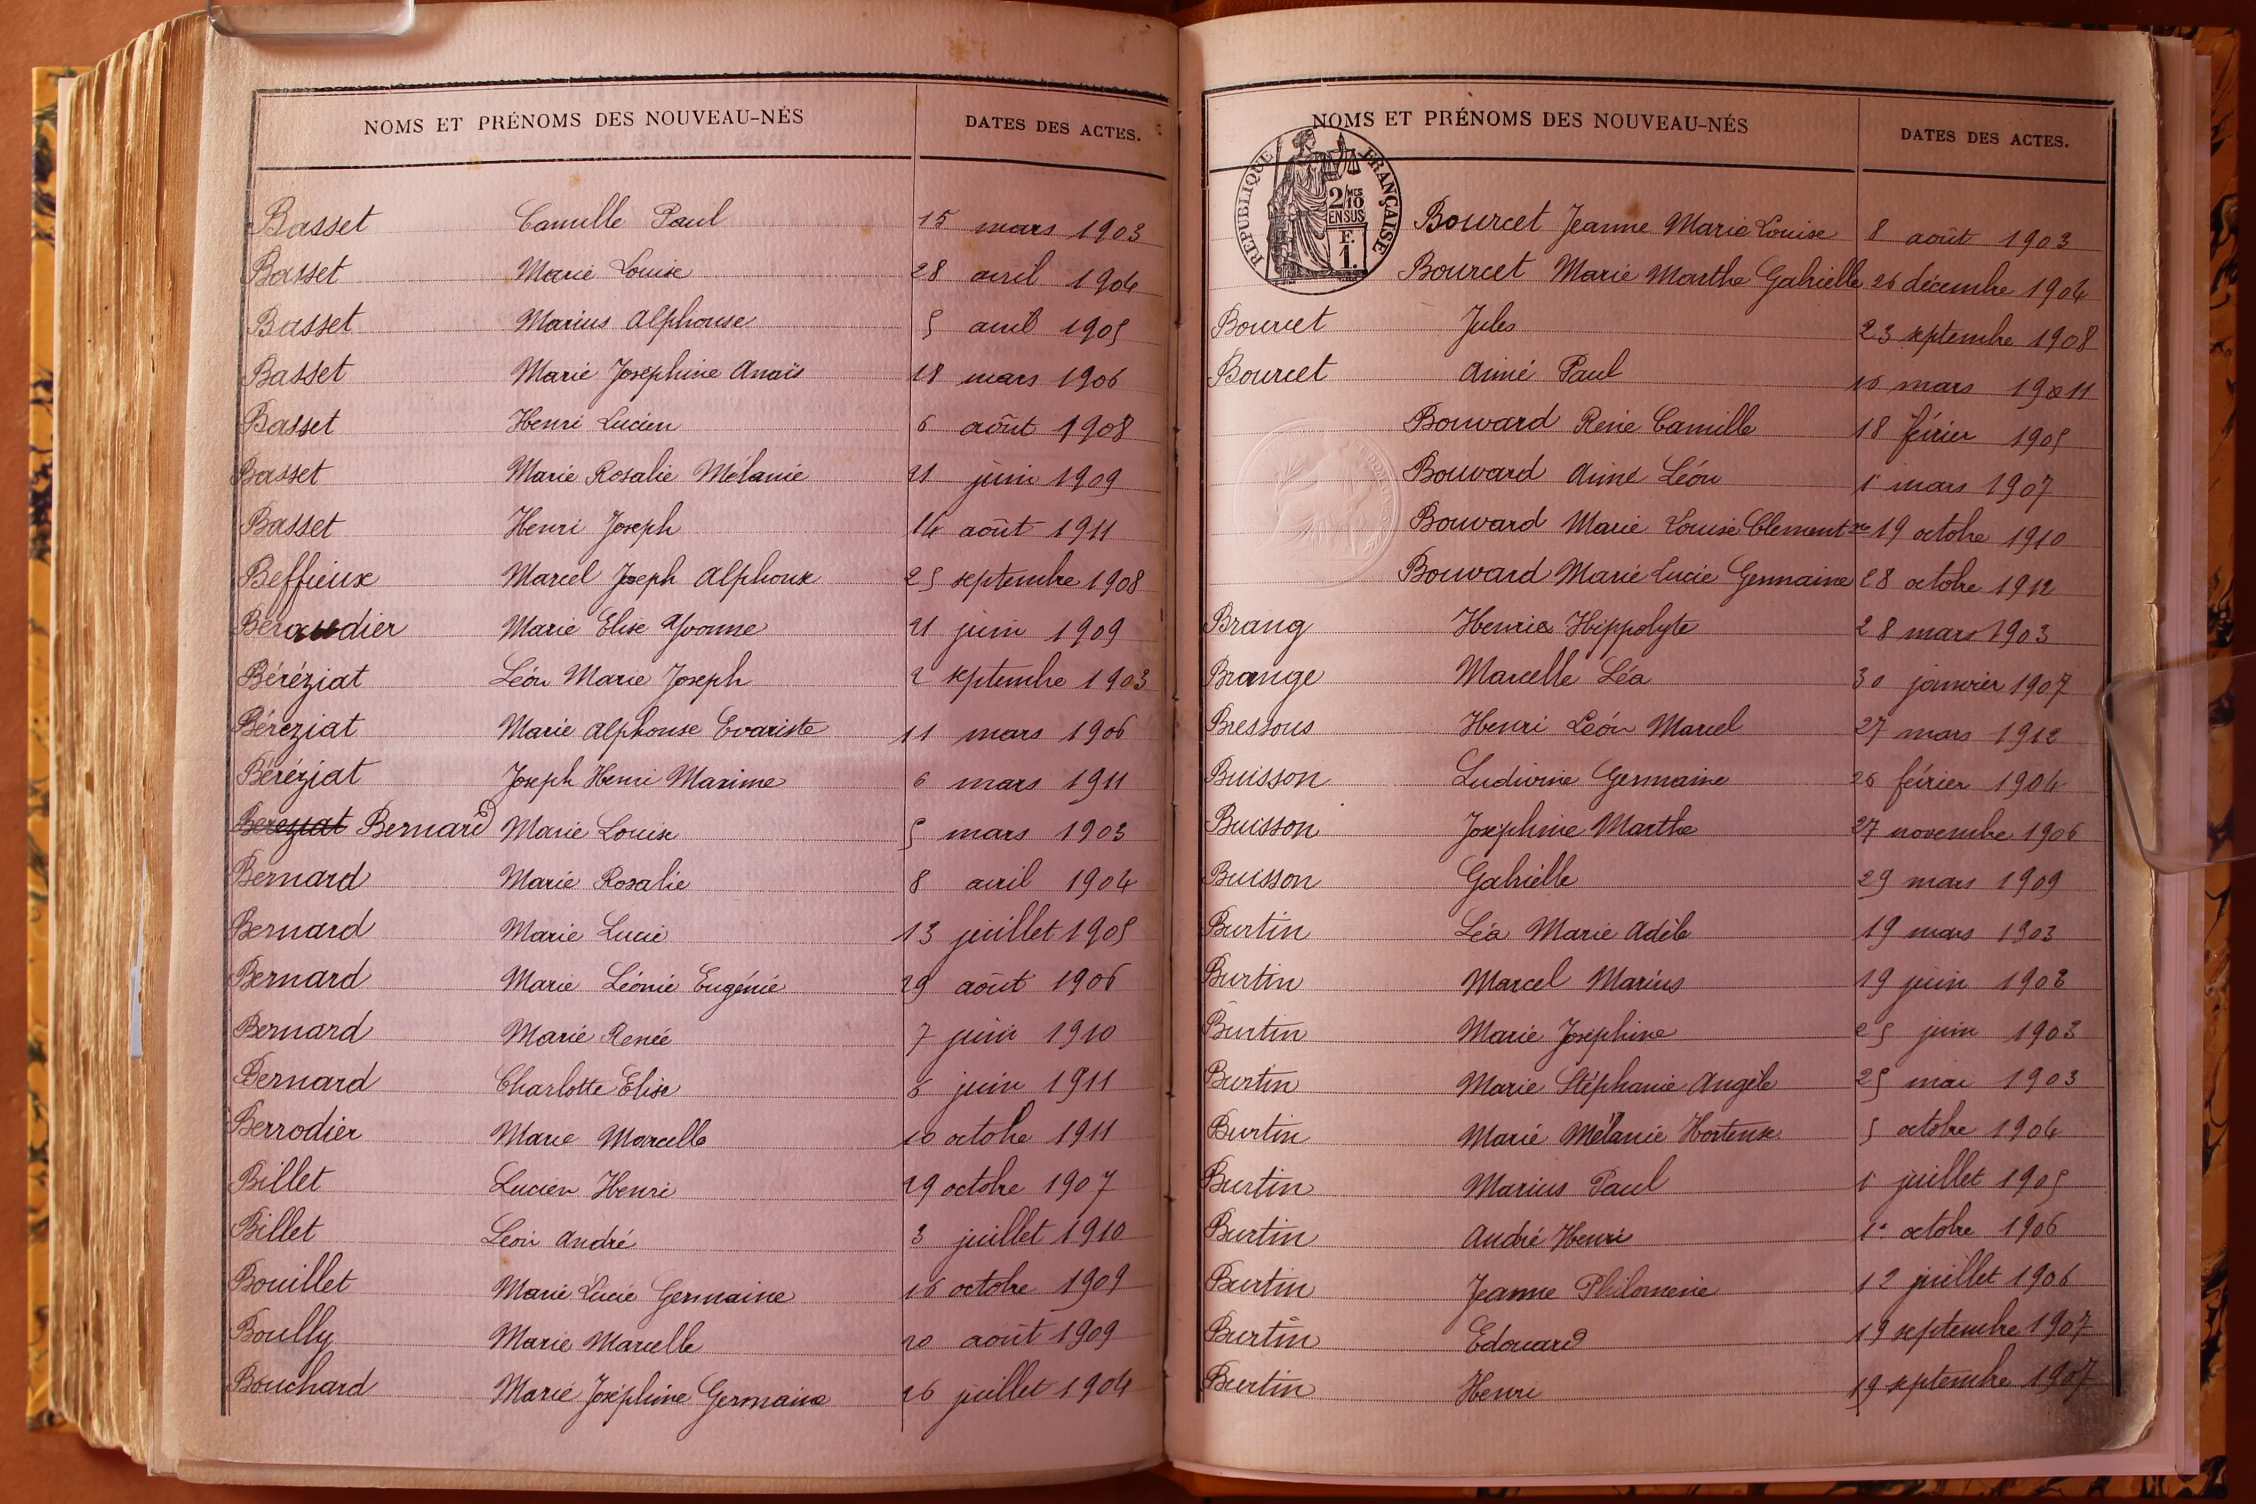 NOMS ET PRÉNOMS DES NOUVEAU-NÉS DATES DES ACTES.
Basset Camille Paul 15 mars 1903
Basset Marie Louise 28 avril 1904
Basset Marius Alphonse 5 avril 1905
Basset Marie Joséphine Anaïs 18 mars 1906
Basset Henri Lucien 6 août 1908
Basset Marie Rosalie Mélanie 21 juin 1909
Basset Henri Joseph 14 août 1911
Beffieux Marcel Joseph Alphonse 25 septembre 1908
Béraudier Marie Elise Yvonne 21 juin 1909
Béréziat Léon Marie Joseph 2 septembre 1903
Béreziat Marie Alphonse Evariste 11 mars 1906
Béréziat Joseph Henri Maxime 6 mars 1911
Bereziat Bernard Marie Louise 5 mars 1903
Bernard Marie Rosalie 8 avril 1904
Bernard Marie Lucie 13 juillet 1905
Bernard Marie Léonie Eugénie 29 août 1906
Bernard Marie Renée 7 juin 1910
Bernard Charlotte Elise 6 juin 1911
Berrodier Marie Marcelle 10 octobre 1911
Billet Lucien Henri 29 octobre 1907
Billet Léon André 3 juillet 1910
Bouillet Marie Lucie Germaine 16 octobre 1909
Boully Marie Marcelle 20 août 1909
Bouchard Marie Joséphine Germaine 26 juillet 1904
NOMS ET PRÉNOMS DES NOUVEAU-NÉS DATES DES ACTES.
RÉPUBLIQUE FRANÇAISE
2/10 MES
EN SUS
F.
1.
Bourcet Jeanne Marie Louise 8 août 1903
Bourcet Marie Marthe Gabrielle 26 décembre 1904
Bourcet Jules 23 septembre 1908
Bourcet Aimé Paul 16 mars 1911
Bouvard René Camille 18 février 1905
Bouvard Aimé Léon 1 mars 1907
Bouvard Marie Louise Clementne 19 octobre 1910
Bouvard Marie Lucie Germaine 28 octobre 1912
Brang Henri Hippolyte 28 mars 1903
Brange Marcelle Léa 30 janvier 1907
Bressous Henri Léon Marcel 27 mars 1912
Buisson Ludivine Germaine 26 février 1904
Buisson Joséphine Marthe 27 novembre 1906
Buisson Gabrielle 29 mars 1909
Burtin Léa Marie Adèle 19 mars 1903
Burtin Marcel Marius 19 juin 1903
Burtin Marie Joséphine 25 juin 1903
Burtin Marie Stéphanie Angèle 25 mai 1903
Burtin Marie Mélanie Hortense 5 octobre 1904
Burtin Marius Paul 1 juillet 1905
Burtin André Henri 1er octobre 1906
Burtin Jeanne Philomène 12 juillet 1906
Burtin Edouard 19 septembre 1907
Burtin Henri 19 septembre 1907